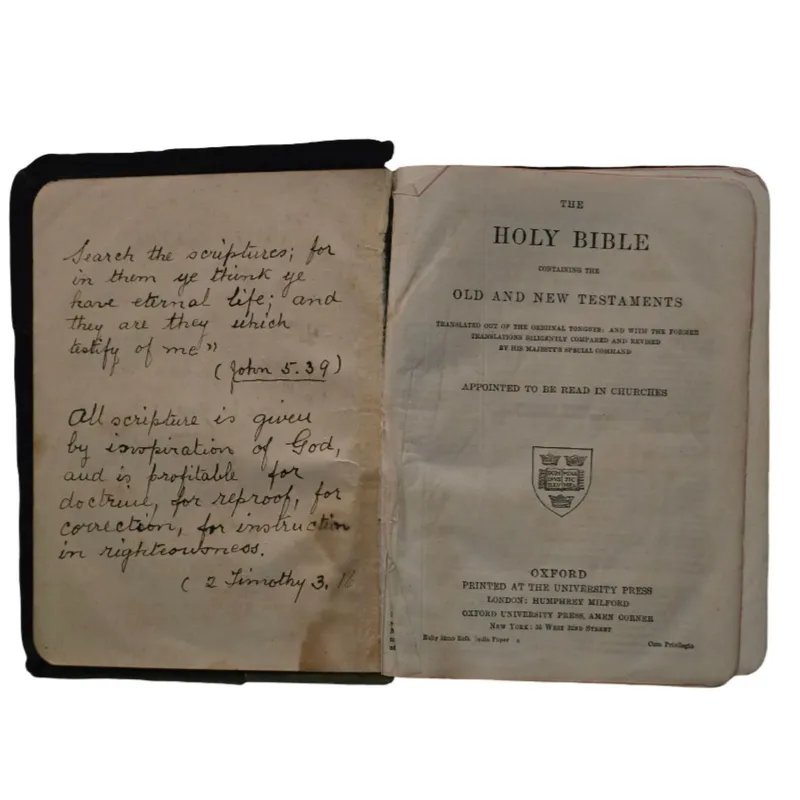 Search the scriptures; for
in them ye think ye
have eternal life; and
they are they which
testify of me"
(John 5.39)
All scripture is given
by inspiration of God,
and is profitable for
doctrine, for reproof, for
correction, for instruction
in righteousness.
(2 Timothy 3.16
THE
HOLY BIBLE
CONTAINING THE
OLD AND NEW TESTAMENTS
TRANSLATED OUT OF THE ORIGINAL TONGUES: AND WITH THE FORMER
TRANSLATIONS DILIGENTLY COMPARED AND REVISED
BY HIS MAJESTY'S SPECIAL COMMAND
APPOINTED TO BE READ IN CHURCHES
OXFORD
PRINTED AT THE UNIVERSITY PRESS
LONDON: HUMPHREY MILFORD
OXFORD UNIVERSITY PRESS, AMEN CORNER
NEW YORK: 35 WEST 32ND STREET
Ruby India Paper
Cum Privilegio